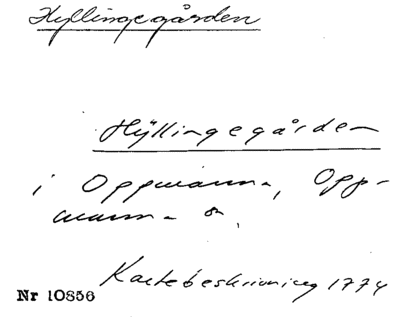 Hyllingegården
Hÿllingegården
i Oppmanna, Opp-
manna sn.
Kartebeskrivning 1774
Nr 10856